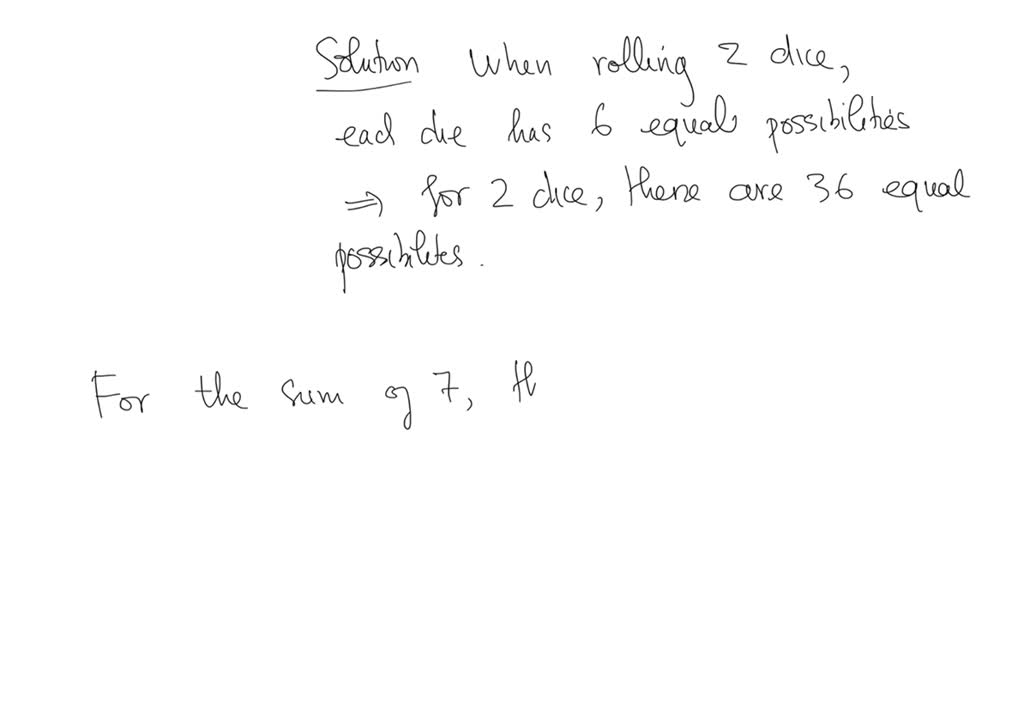 Solution When rolling 2 dice,
each die has 6 equal possibilities
⇒ for 2 dice, there are 36 equal
possibilites.
For the sum of 7, th